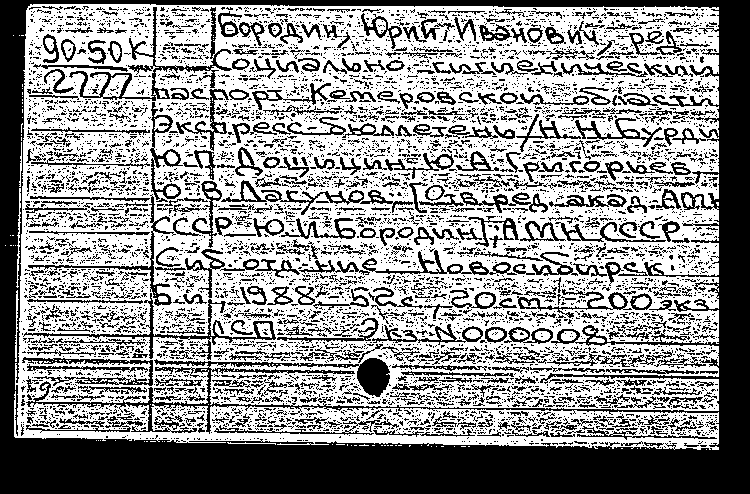 Бородин, Юрий Иванович, ред.
90-50к
2777
Социально-гигиенический
паспорт Кемеровской области
Экспресс-бюллетень/Н.Н.Бурди
Ю.П.Дощицин, Ю.А.Григорьев,
Ю.В.Лагунов; [Отв.ред. акад. АМН
СССР Ю.И.Бородин]; АМН СССР.
Сиб. отд-ние. Новосибирск:
Б.и., 1988 52с., 20см. 200экз.
ДСП. Экз. N000008